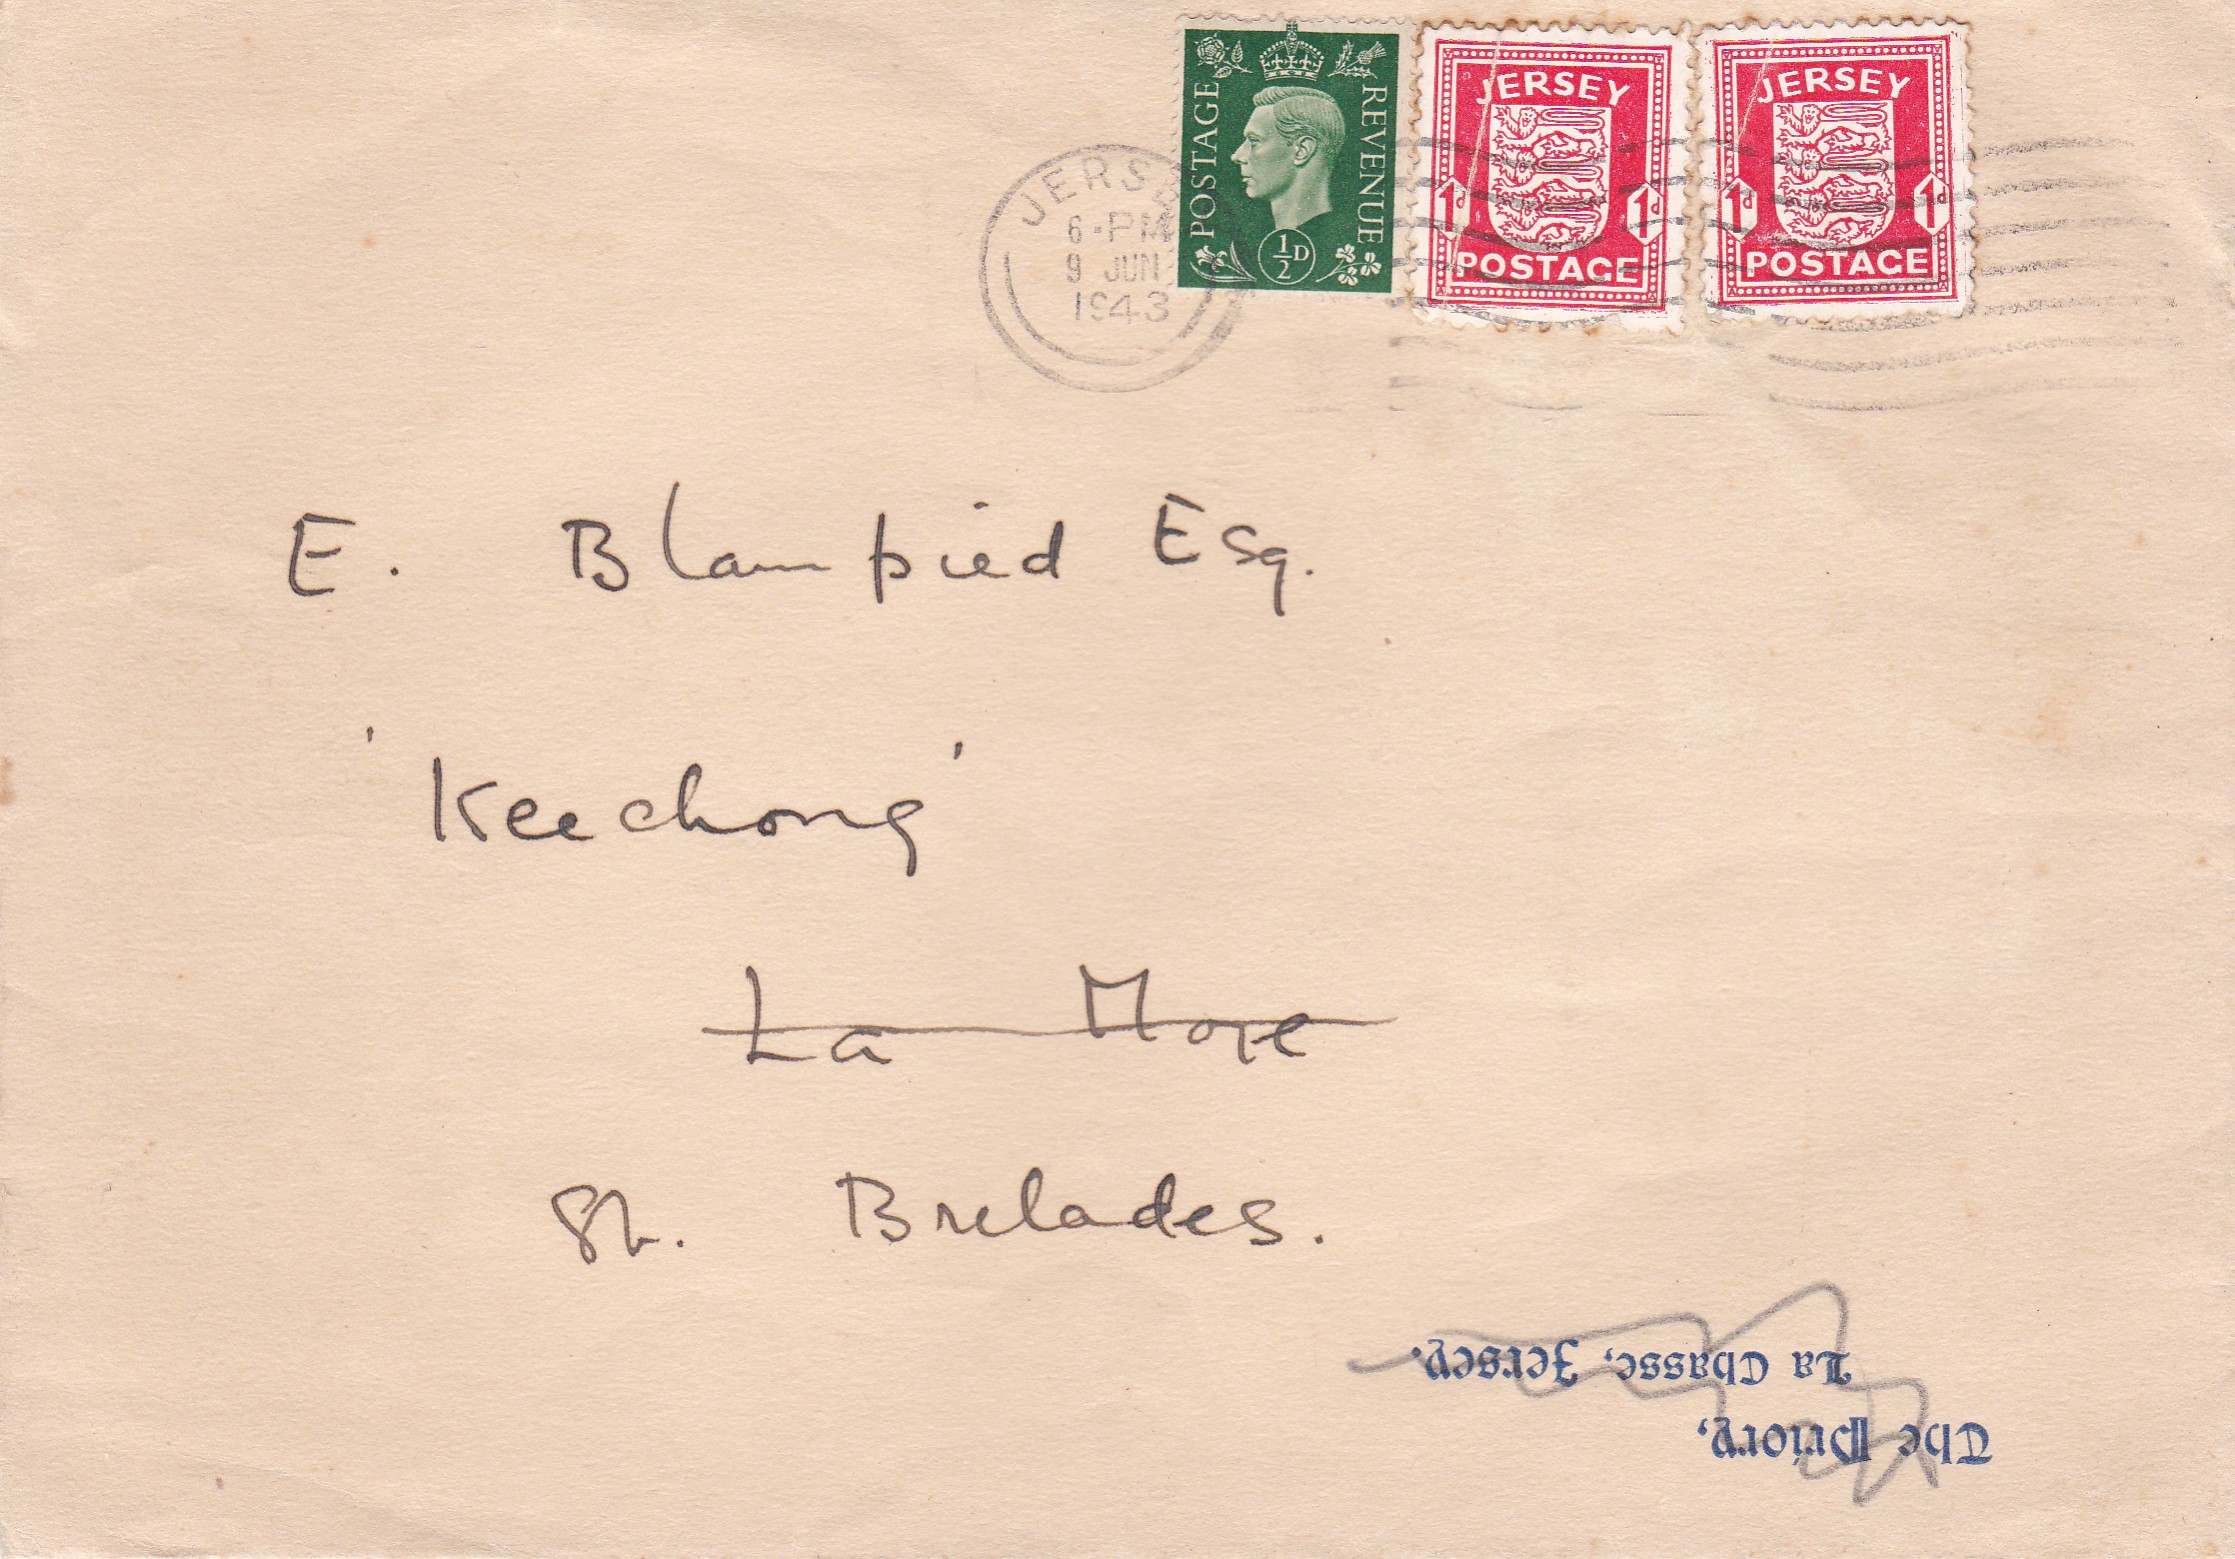 JERSEY
6-PM
9 JUN
1943
POSTAGE REVENUE
½D
JERSEY
1d 1d
POSTAGE
JERSEY
1d 1d
POSTAGE
E. Blampied Esq.
'Keechong'
La Moye
St. Brelades.
The Priory,
La Chasse, Jersey.